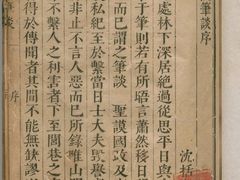 筆談序
沈括
處林下深居絕過從思平日與
于筆則若有所晤言蕭然移日
而已謂之筆談 聖謨國政及
私紀至於繫當日士大夫毀譽
非止不言人惡而已所錄唯山間
不繫人之利害者下至閭巷之
得於傳聞者其間不能無缺謬
序